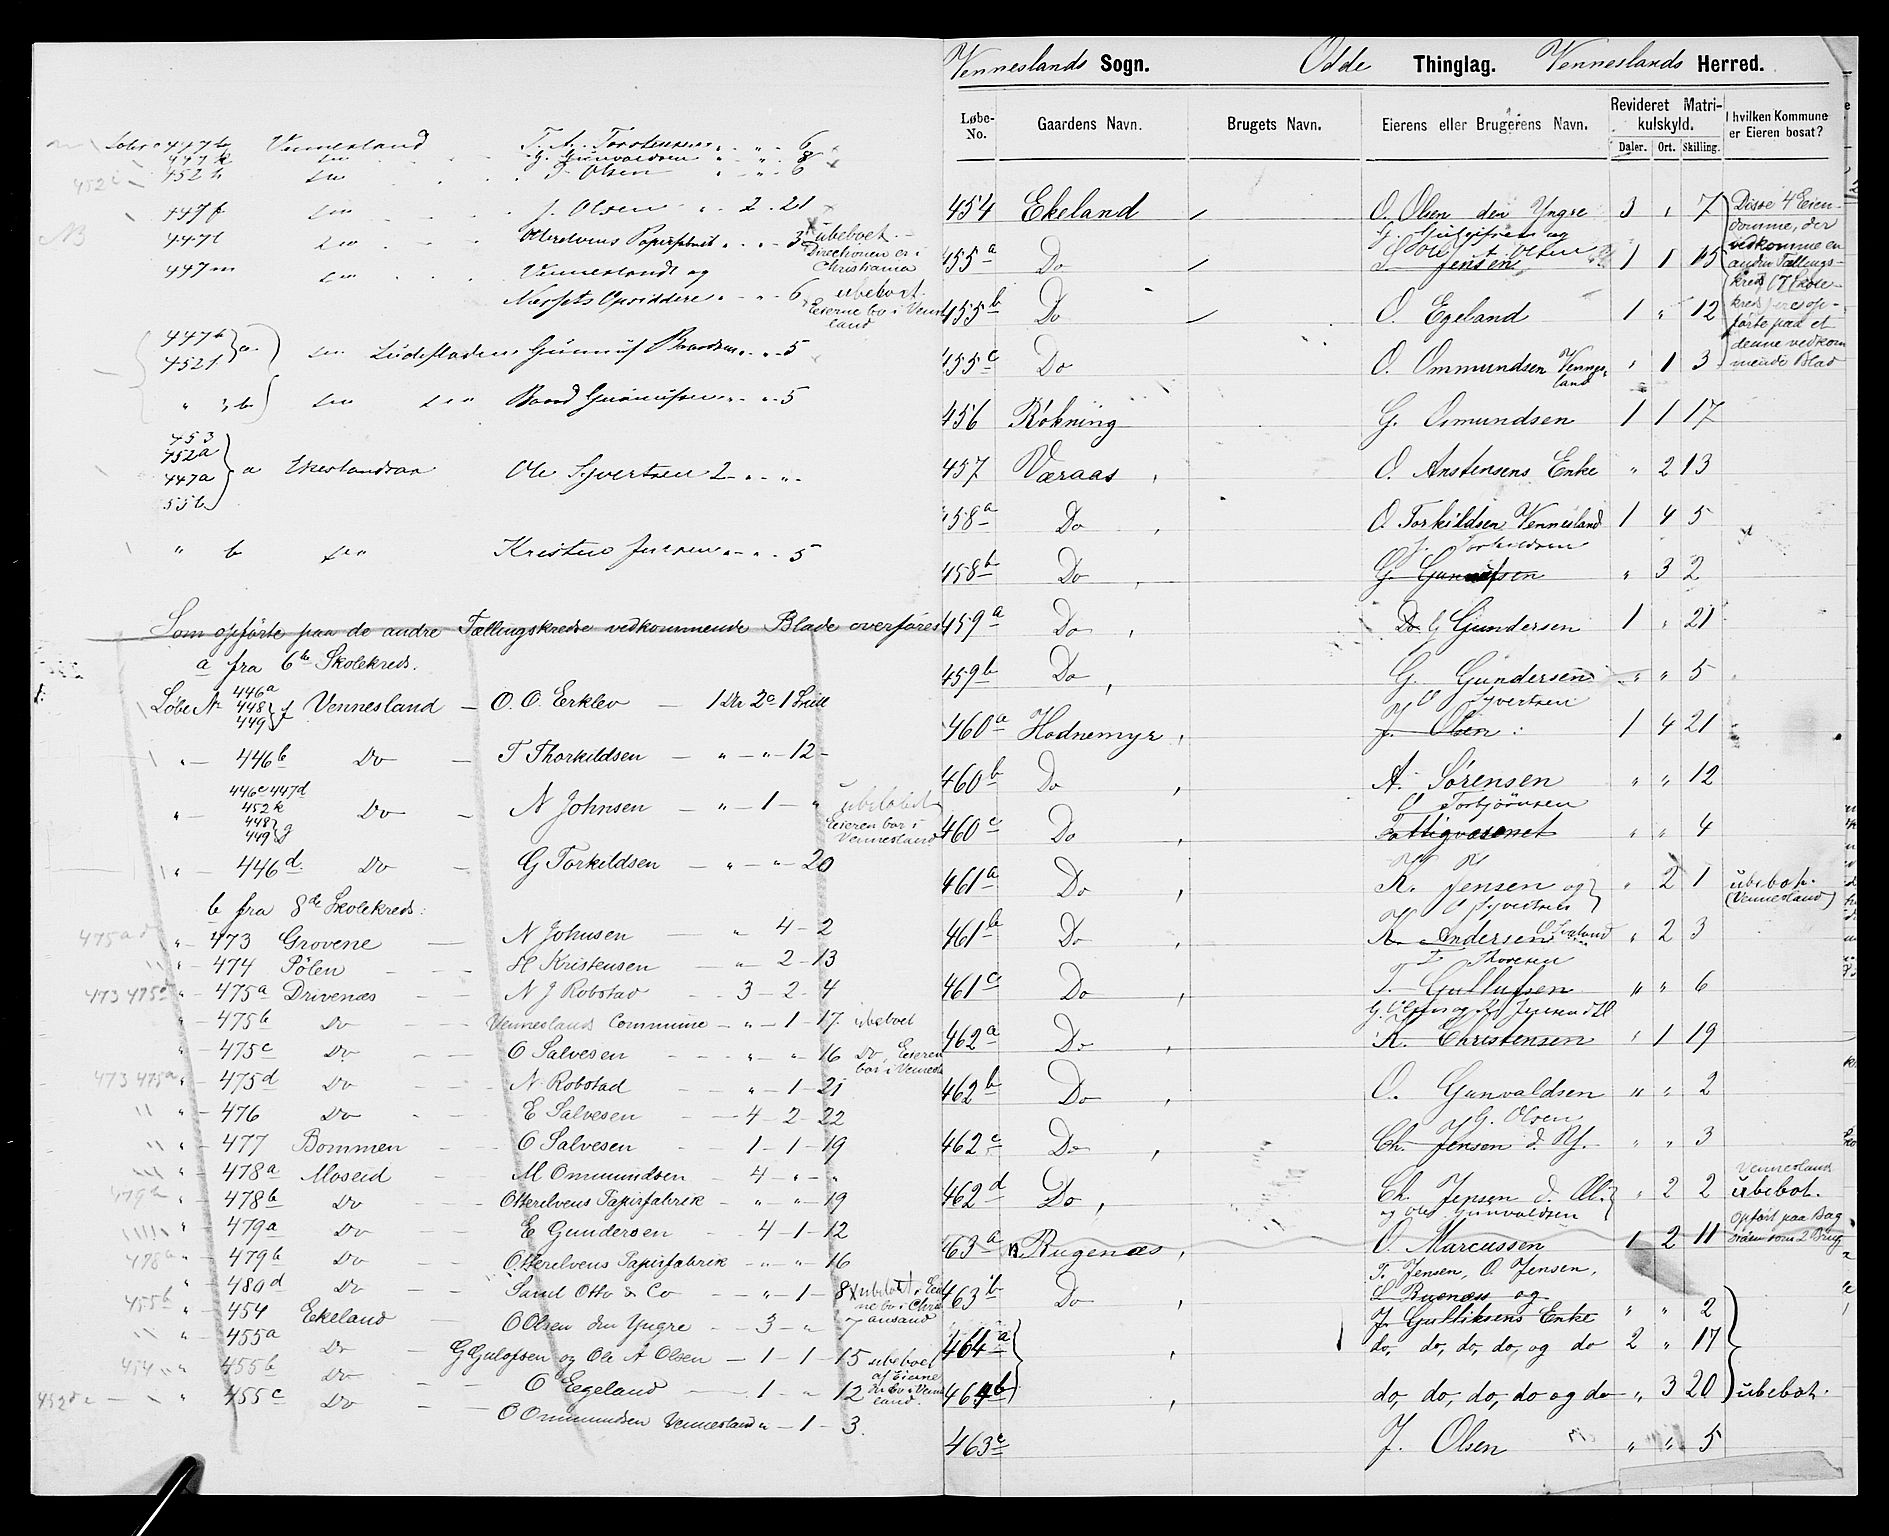 447b Vennesland T. A. Torstensen " " 6
447k do G. Gunvaldsen " " 8
452i 452h do J. Olsen " " 6
447f do J. Olsen " 2 21
447l do Otterelvens Papirfabrik " " 3 ubeboet
Direktionen er i
Christiania
447m do Venneslands og
Næssets Opsiddere " " 6 ubeboet.
Eierne bo i Vennes
land
447h
452f } a do Gunnuf Baardsen " " 5
" b do do Baard Gunnufsen " " 5
453
452a
447a
55b } a Ekelandsaa Ole Syvertsen 2 " "
" b do Kristen Jensen " " 5
Som opførte paa de andre Tællingskredse vedkommende Blade overføres
a fra 6te Skolekreds.
Løbe No 446a
448
449 } f Vennesland – O. O. Erklev – 1 Dlr 2 o 1 Skill
" – 446b Do – T Thorkildsen – " – " – 12 –
446c 447d
452k
448
449 } g
" – Do – N Johnsen – " – 1 – " ubeboet
Eieren bor i
Vennesland
" – 446d. Do – G Torkildsen – " – " – 20
b fra 8de Skolekreds:
475a d " – 473 Grovene – N Johnsen – " 4 – 2
" – 474 Pølen – H Kristensen – " – 2 – 13
473 475d " – 475a Drivenæs – N J Robstad – 3 – 2 – 4
" – 475b Do Venneslands Commune – " – 1 – 17. ubeboet
" – 475c Do – O Salvesen – " – " – 16 Do, Eieren
bor i Vennesla
473 475a " – 475d Do – N. Robstad – " – 1 – 21
" – 476 Do – E Salvesen – 4 – 2 – 22
" – 477 Bommen – O Salvesen – 1 – 1 – 19
" – 478a Moseid – M Ommundsen – 4 – " – "
479b " – 478b Do – Otterelvens Papirfabrik – " – " – 19
" – 479a Do – E Gundersen – 4 – 1 – 12
478a " – 479b Do – Otterelvens Papirfabrik – " – " – 16
" – 480d Do – Saml Otto & Co – " – 1 – 8 ubeboet, Eier
ne bo i Chris
ansand
455b " – 454 Ekeland – O Olsen den Yngre – 3 – " – 7
" 455a Do – G Gulofsen og Ole A Olsen – 1 – 1 – 15 ubeboet
af Eierne
454 " 455b Do – O Egeland – 1 – " 12 der bo i Vennes
land.
452 " 455c Do – O Ommundsen Vennesland " – 1 – 3.
Venneslands Sogn. Odde Thinglag. Venneslands Herred.
Løbe-
No. Gaardens Navn. Brugets Navn. Eierens eller Brugerens Navn. Revideret Matri-
kulskyld. I hvilken Kommune
er Eieren bosat?
Daler. Ort. Skilling.
454 Ekeland O. Olsen den Yngre 3 " 7 Disse 4 Eien-
domme, der
vedkomme en
anden Tællings-
kreds (7 Skole-
kreds) ere op-
førte paa et
denne vedkom
mende Blad
og
455a Do Ole A Olsen
Jensen 1 1 15
455b Do O. Egeland 1 " 12
455c Do O. Ommundsen Vennes-
land " 1 3
456 Røkning G. Omundsen 1 1 17
457 Væraas O. Anstensens Enke " 2 13
458a Do O Torkildsen Vennesland 1 4 5
458b Do J. Torkildsen
G. Gunnufsen " 3 2
459a Do Do G Gundersen 1 " 21
459b Do G. Gundersen " " 5
460a Hodnemyr O Syvertsen
J. Olsen 1 4 21
460b Do A. Sørensen " " 12
460c Do O Torbjørnsen
Fattigvæsenet " " 4
461a Do K. Jensen og " 2 1 ubebot.
(Vennesland)
O Syvertsen
461b Do K. Andersen " 2 3
461c Do T Thoresen
T. Gullufsen " " 6
462a Do K. Christensen " 1 19
462b Do O. Gunvaldsen " " 2
462c Do G. Olsen
Ch. Jensen d. Y. " " 3
462d Do Ch. Jensen d. Æl. " 2 2 Vennesland
ubebot.
og Ole Gunvaldsen
463a Rugenæs O. Marcussen 1 2 11 Opført paa Bag
siden som 2 Brug
463b Do T. Jensen, O. Jensen,
og
J. Gulliksens Enke " " 2
464a do, do, do, do, og do 2 " 17
464b do, do, do, do og do " 3 20 ubebot.
463c J. Olsen " " 5